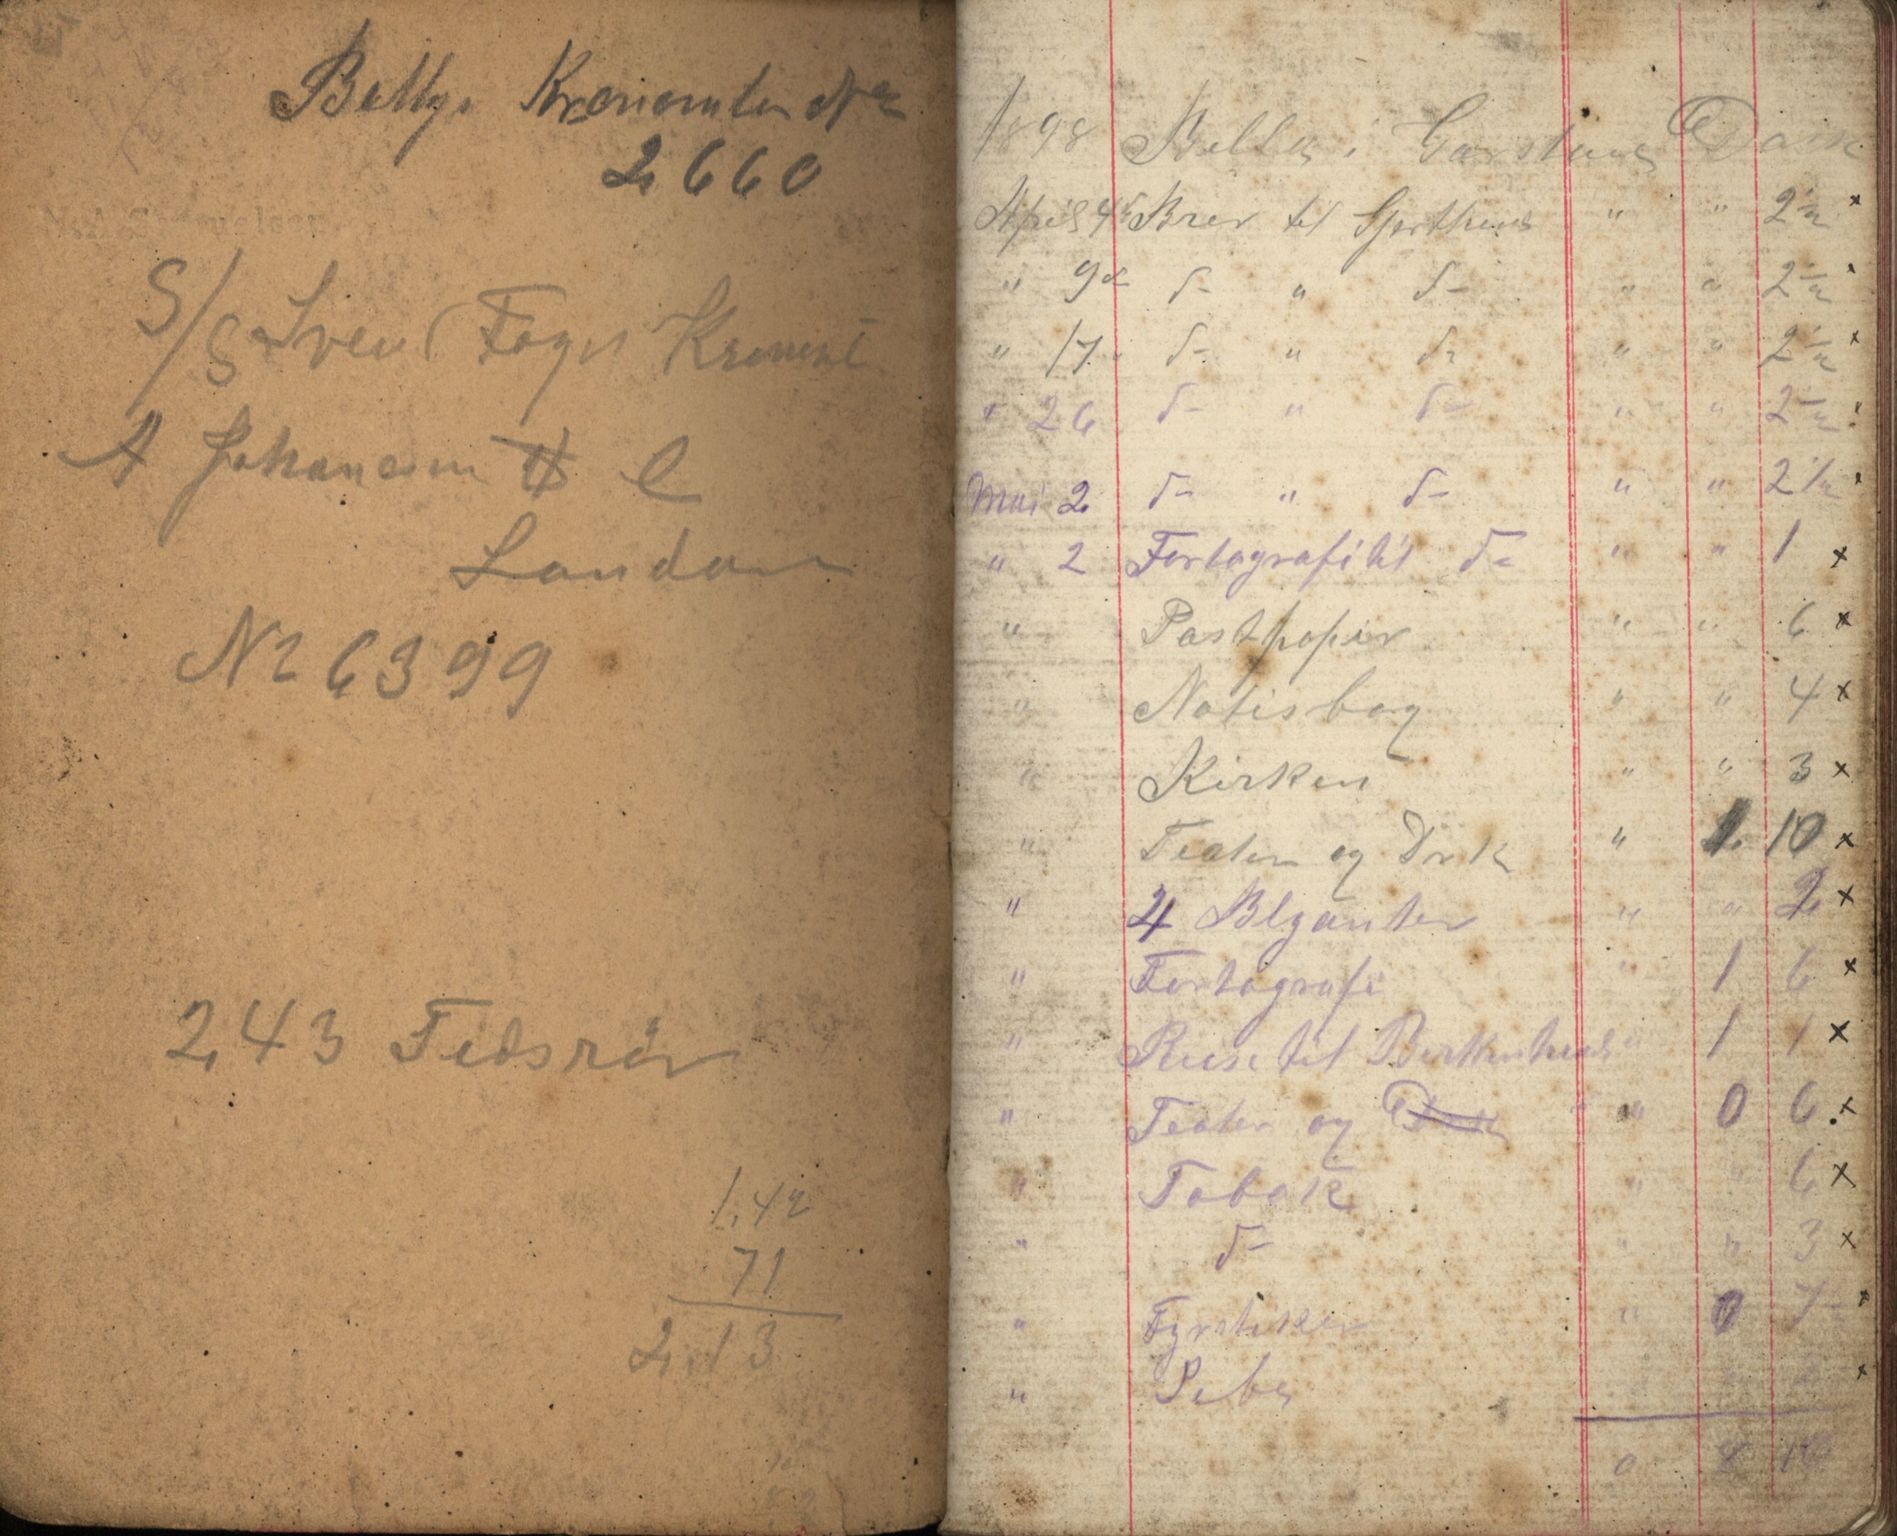 Betty. Kronometer No
2660
S/S Svend Foyn Kronomt
A Johanesen & C
London
No 6399
243 Fedsrör
1,42
71
2,13
1898 Betty i Garstang Dock
April 4 Brev til Hjerthens " " 2½ x
" 9 d- " d- " " 2½ x
" 17 " d- " d- " " 2½ x
" 26 d- " d- " " 2½ x
Mai 2 d- " d- " " 2½ x
" 2 Fortografi til d- " " 1 x
" Postpapir " " 6 x
" Notisbog " " 4 x
" Kirken " " 3 x
" Teater og Drik " 1 10 x
" 4 Blyanter " " 2 x
" Fortografi " 1 6 x
" Reise til Birkenhead " 1 1 x
" Teater og " 0 6 x
" Tobak " " 6 x
" d- " " 3 x
" Fyrstiker " 0 7 x
" Pibe x
0